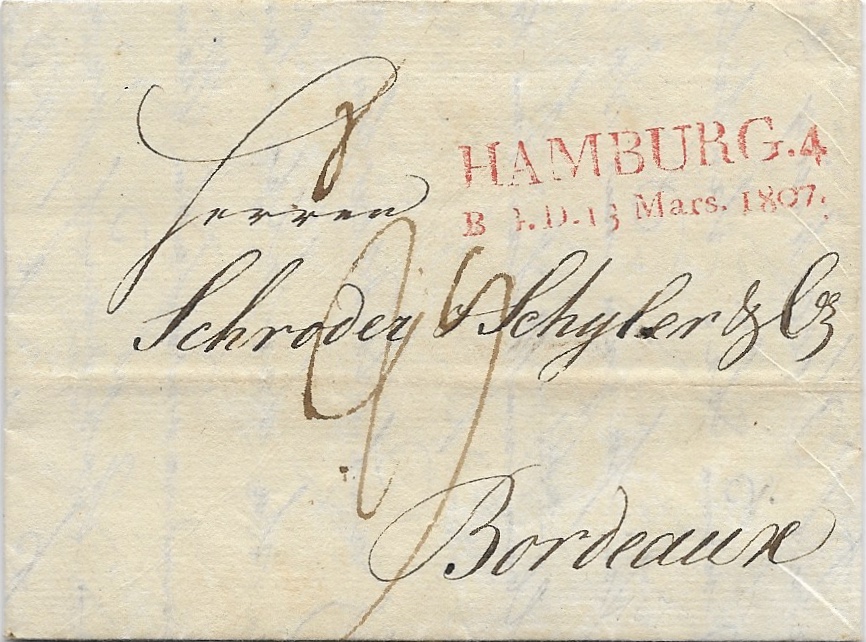 8
HAMBURG.4
B. 4.D.13 Mars. 1807.
Herren
Schroder & Schyler & Co
Bordeaux